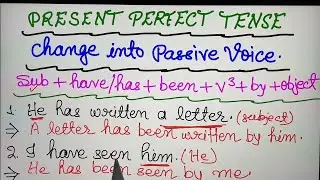 PRESENT PERFECT TENSE
change into Passive Voice.
Sub + have/has + been + v³ + by + object
1. He has written a letter. (subject)
→ A letter has been written by him.
2. I have seen him. (He)
→ He has been seen by me